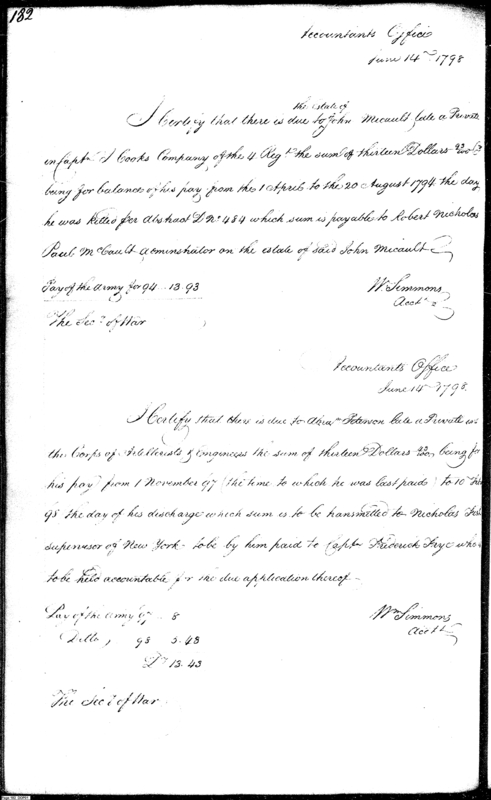 182
Accountants Office
June 14th 1798
the estate of
I Certify that there is due to John Micault late a Private
in Capt J Cooks Company of the 4 Regt the sum of thirteen Dollars 93/100
being for balance of his pay from the 1 April to the 20 August 1794 the day
he was killed per Abstract D No 484 which sum is payable to Robert Nicholas
Paul McCault adminstrator on the estate of said John Micault
Pay of the Army for 94 .. 13.93
Wm Simmons
Acct
The Secy of War
Accountants Office
June 14th 1798
I Certify that there is due to Peterson late a Private in
the Corps of Artillerists & Engineers the sum of thirteen Dollars being for
his pay from 1 November 97 (the time to which he was last paid) to 10
98 the day of his discharge which sum is to be transmitted to Nicholas
supervisor of New York to be by him paid to Capt Frederick Frye who
to be held accountable for the due application thereof
Pay of the Army 97 .. 8
Ditto, 98 5.43
Ds 13.43
Wm Simmons
Acct
The Secy of War